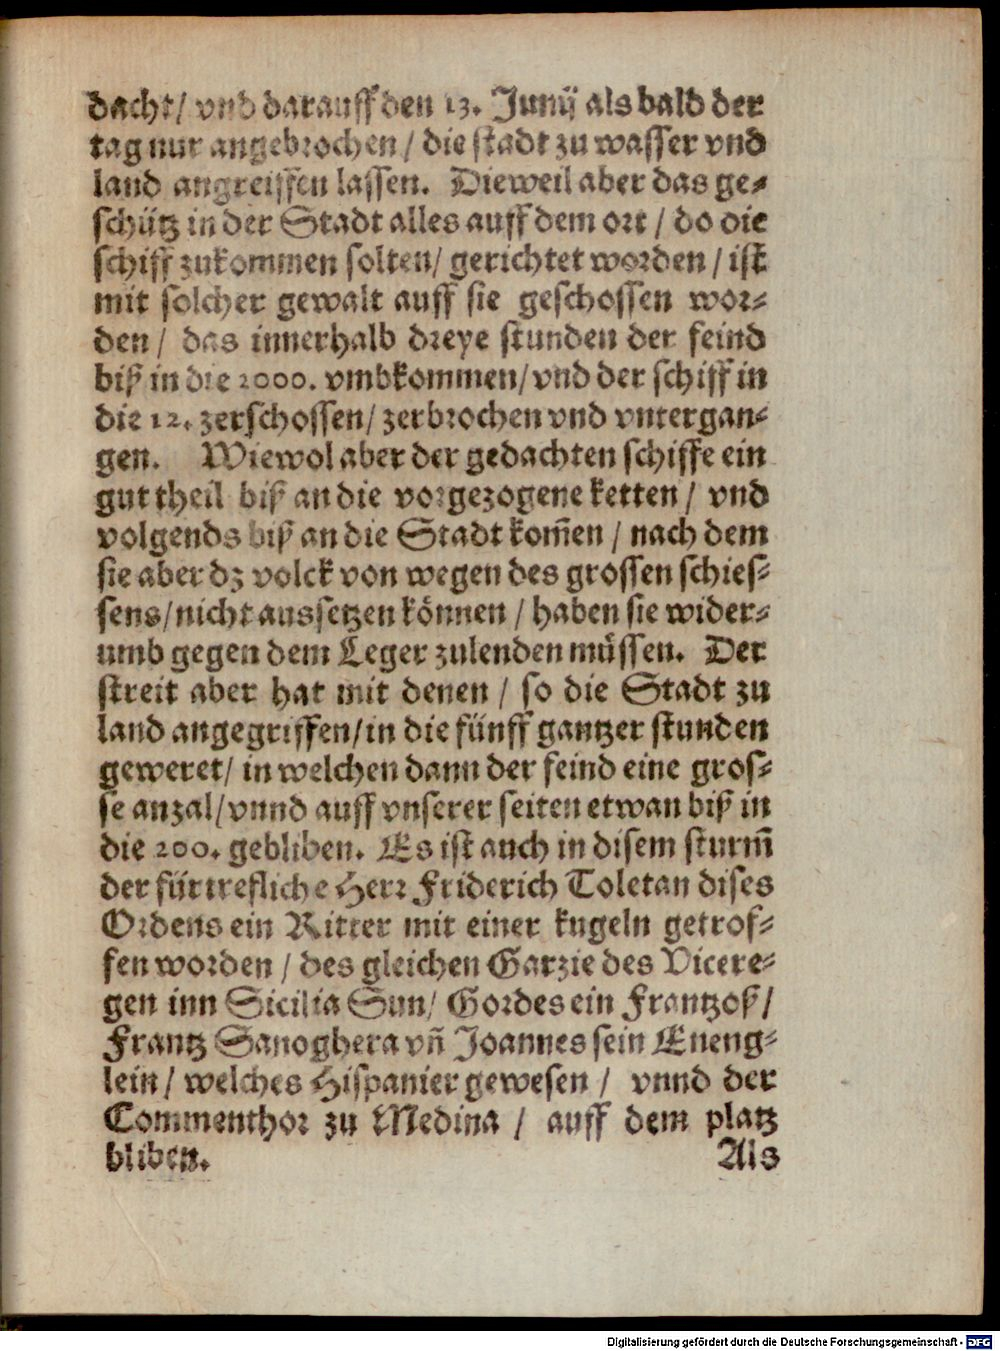 dacht/ vnd darauff den 13. Junij als bald der
tag nur angebrochen / die stadt zu wasser vnd
land angreiffen lassen. Dieweil aber das ge-
schütz in der Stadt alles auff dem ort / do die
schiff zukommen solten/ gerichtet worden / ist
mit solcher gewalt auff sie geschossen wor-
den / das innerhalb dreye stunden der feind
biß in die 2000. vmbkommen/ vnd der schiff in
die 12. zerschossen/ zerbrochen vnd vntergan-
gen. Wiewol aber der gedachten schiffe ein
gut theil biß an die vorgezogene ketten / vnd
volgends biß an die Stadt kom̄en / nach dem
sie aber dz volck von wegen des grossen schies-
sens/ nicht aussetzen können / haben sie wider-
umb gegen dem Leger zulenden müssen. Der
streit aber hat mit denen / so die Stadt zu
land angegriffen/ in die fünff gantzer stunden
geweret/ in welchen dann der feind eine gros-
se anzal/ vnnd auff vnserer seiten etwan biß in
die 200. gebliben. Es ist auch in disem sturm̄
der fürtrefliche Herr Friderich Toletan dises
Ordens ein Ritter mit einer kugeln getrof-
fen worden / des gleichen Garzie des Vicere-
gen inn Sicilia Sun/ Gordes ein Frantzoß /
Frantz Sanoghera vñ Joannes sein Eneng-
lein / welches Hispanier gewesen / vnnd der
Commenthor zu Medina / auff dem platz
bliben. Als
Digitalisierung gefördert durch die Deutsche Forschungsgemeinschaft - DFG